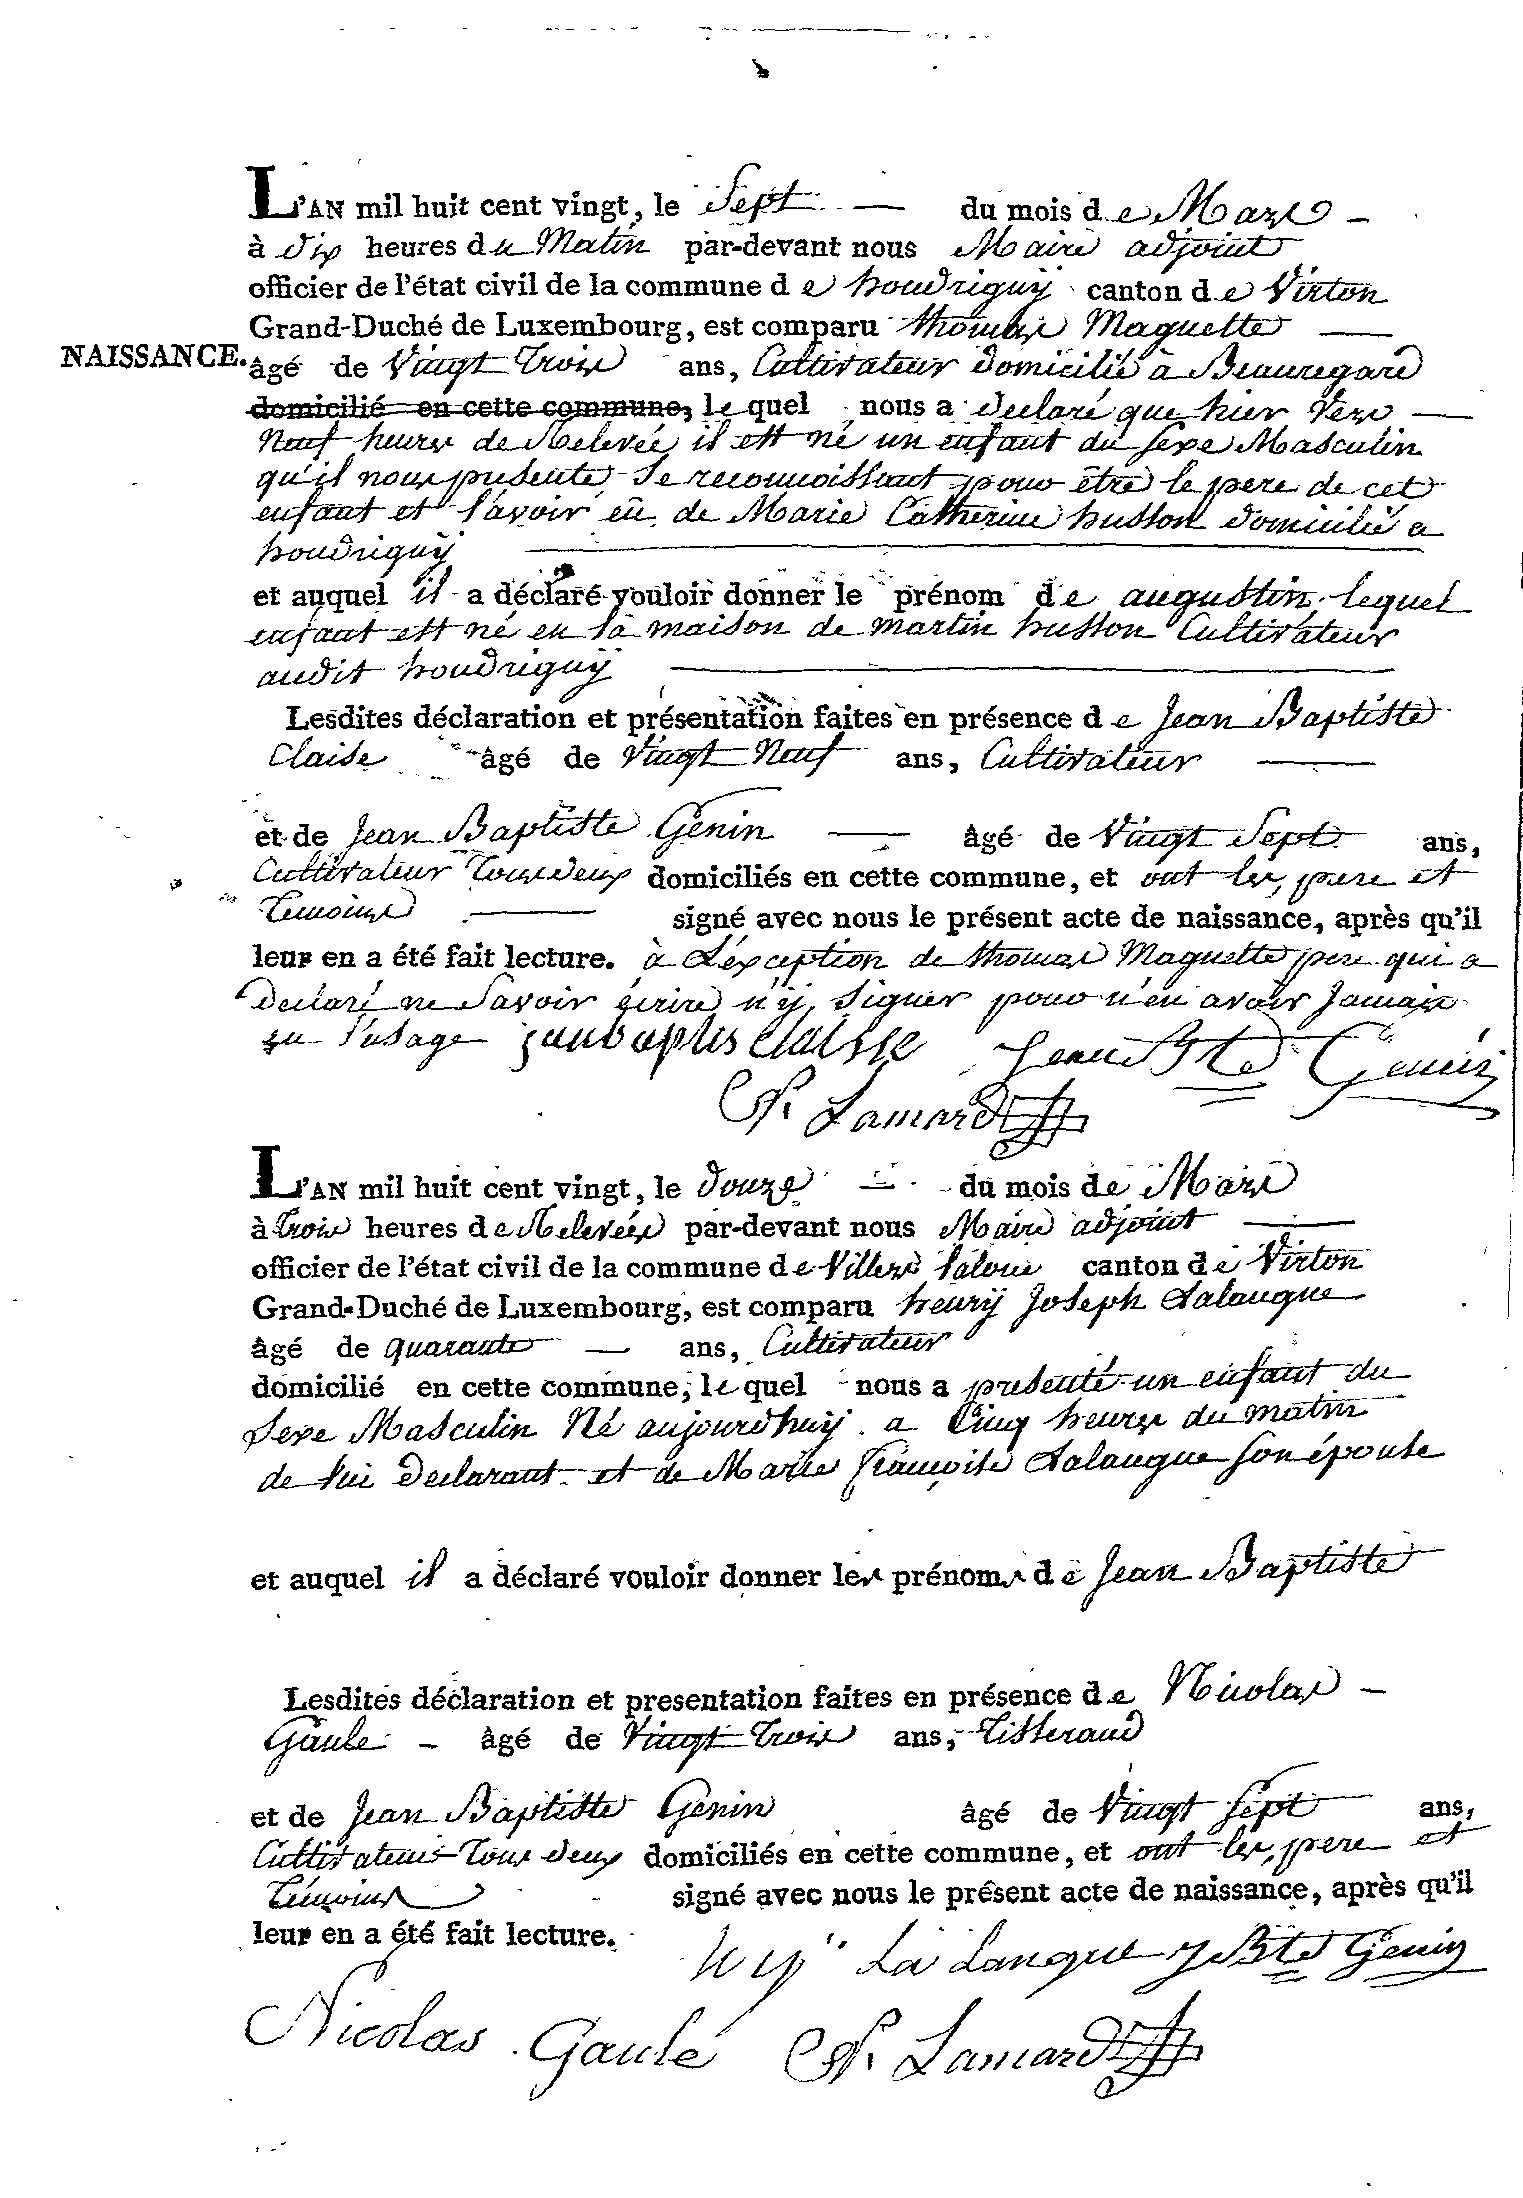 L'AN mil huit cent vingt, le Sept — du mois de Mars -
à dix heures du Matin par-devant nous Maire adjoint
officier de l'état civil de la commune de houdriguÿ canton de Virton
Grand-Duché de Luxembourg, est comparu thomas Maguette —
NAISSANCE. âgé de Vingt Trois ans, Cultivateur domicilié à Beauregard
domicilié en cette commune, le quel nous a declaré que hier Vers —
Neuf heures de Relevée il est né un enfant du sexe Masculin
qu'il nous presente se reconnoissant pour être le pere de cet
enfant et l'avoir eû de Marie Catherine husson domicilié a
houdriguÿ
et auquel il a déclaré vouloir donner le prénom de augustin lequel
enfant est né en la maison de martin husson Cultivateur
audit houdriguÿ
Lesdites déclaration et présentation faites en présence de Jean Baptiste
Claise âgé de Vingt Neuf ans, Cultivateur —
et de Jean Baptiste Genin — âgé de Vingt Sept ans,
Cultivateur Tous deux domiciliés en cette commune, et ont les pere et
Temoins — signé avec nous le présent acte de naissance, après qu'il
leur en a été fait lecture. à L'exception de thomas Maguette pere qui a
declaré ne Savoir écrire n'ÿ Signer pour n'en avoir Jamais
eu l'usage janbaptis claisse Jean Bte Genin
Lamard
L'AN mil huit cent vingt, le douze du mois de Mars
à trois heures de Relevée par-devant nous Maire adjoint —
officier de l'état civil de la commune de Villers laloue canton de Virton
Grand-Duché de Luxembourg, est comparu henrÿ Joseph Lalangue
âgé de quarante — ans, Cultivateur
domicilié en cette commune, le quel nous a presenté un enfant du
sexe Masculin Né aujourdhuÿ a Cinq heures du matin
de lui declarant et de Marie françoise Lalangue son épouse
et auquel il a déclaré vouloir donner les prénoms de Jean Baptiste
Lesdites déclaration et presentation faites en présence de Nicolas -
Gaule - âgé de Vingt Trois ans, Tisserand
et de Jean Baptiste Genin âgé de Vingt Sept ans,
Cultivateurs Tous deux domiciliés en cette commune, et ont les pere et
Témoins signé avec nous le présent acte de naissance, après qu'il
leur en a été fait lecture.
La Langue J Bte Genin
Nicolas Gaulé Lamard